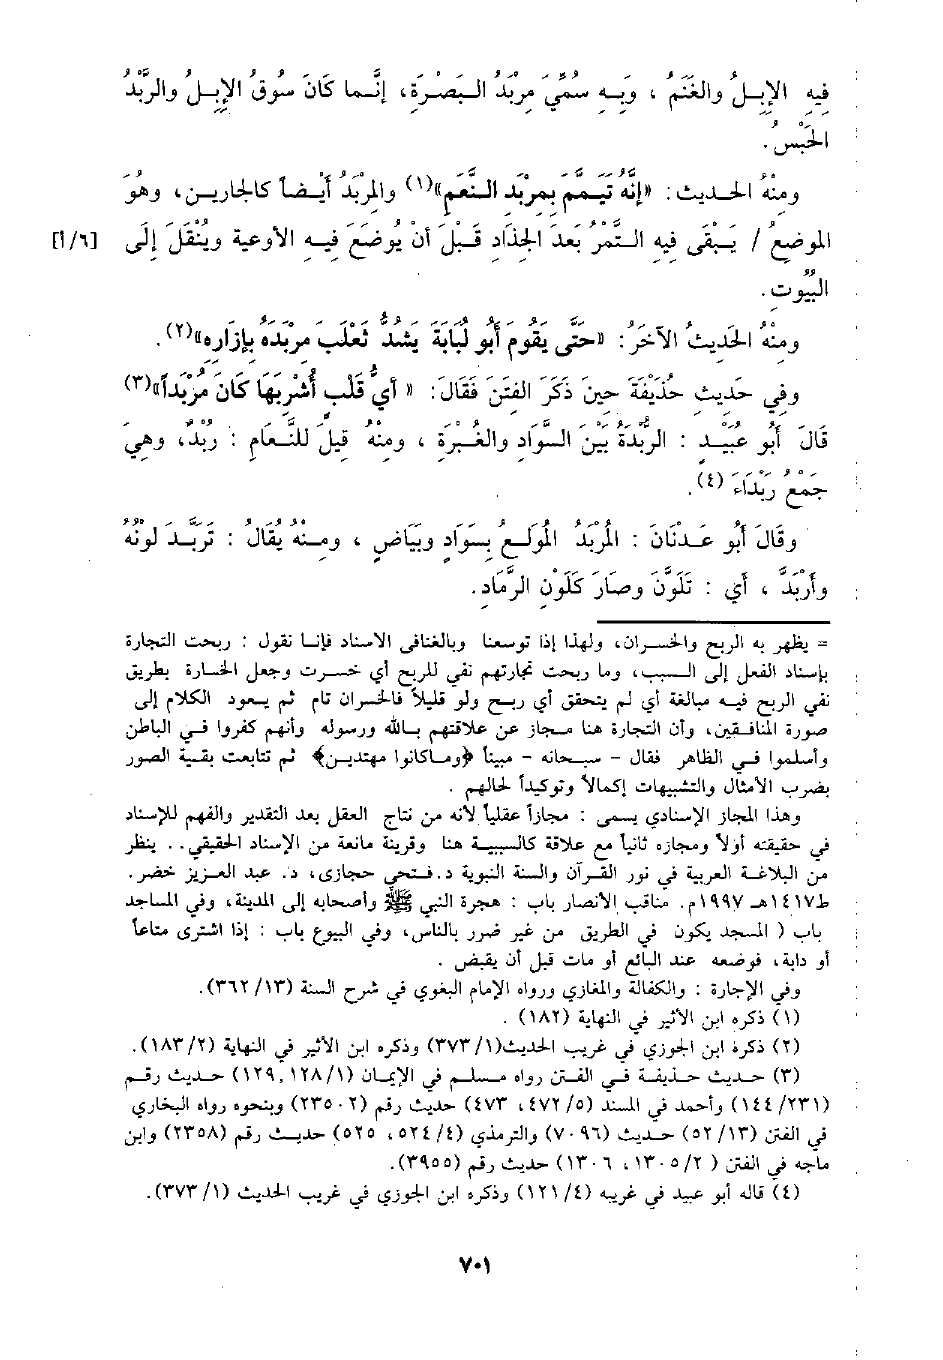 فِيهِ الإِبِلُ والغَنَمُ ، وبِهِ سُمِّيَ مِرْبَدُ البَصْرَةِ، إنَّما كَانَ سُوقُ الإِبِلُ والرَّبْدُ
الحَبْسُ.
ومِنْهُ الحديث: «إنَّهُ تَيَمم بِمِرْبَد النَّعَمِ»(١) والمِرْبَدُ أَيْضاً كالجارين، وهُوَ
الموضِعُ / يَبْقَى فِيهِ التَّمْرُ بَعدَ الجِذَادِ قَبْلَ أنْ يُوضَعَ فيهِ الأوعية ويُنْقَلَ إلَى [٦/أ]
البُيُوتِ.
ومِنْهُ الحَدِيثُ الآخَرُ: «حَتَّى يَقُومَ أَبُو لُبَابَةَ يَشُدُّ ثَعْلَبَ مِرْبَدِهُ بِإزَارِهِ»(٢).
وفي حَدِيثِ حُذَيْفَةَ حِينَ ذَكَرَ الفِتَنَ فَقَالَ: « أَيُّ قَلْبٍ أُشْرِبَهَا كَانَ مُرْبَداً»(٣)
قَالَ أَبُو عُبَيْد : الرُّبْدَةُ بَيْنَ السَّوَادِ والغُبْرَةِ ، ومنْهُ قيلَ للنَّعامِ : رُبْدٌ، وهِيَ
جَمْعُ رَبْدَاءَ (٤).
وقَالَ أَبُو عَدْنَانَ : المُرْبَدُ المُولَعُ بِسَوَادٍ وبَيَاضٍ ، ومِنْهُ يُقَالُ : تَرَبَّدَ لَونُهُ
وأَرْبَدَّ ، أَي : تَلَوَّنَ وصَارَ كَلَوْنِ الرَّمَادِ.
= يظهر به الربح والخسران، ولهذا إذا توسعنا وبالغنافى الاسناد فإنا نقول : ربحت التجارة
بإسناد الفعل إلى السبب، وما ربحت تجارتهم نفي للربح أي خسرت وجعل الخسارة بطريق
نفي الربح فيه مبالغة أي لم يتحقق أي ربح ولو قليلاً فالخسران تام ثم يعود الكلام إلى
صورة المنافقين، وأن التجارة هنا مجاز عن علاقتهم بالله ورسوله وأنهم كفروا في الباطن
وأسلموا في الظاهر فقال - سبحانه - مبيناً ﴿وما كانوا مهتدين﴾ ثم تتابعت بقية الصور
بضرب الأمثال والتشبيهات إكمالاً وتوكيداً لحالهم .
وهذا المجاز الإسنادي يسمى : مجازاً عقلياً لأنه من نتاج العقل بعد التقدير والفهم للإسناد
في حقيقته أولاً ومجازه ثانياً مع علاقة كالسببية هنا وقرينة مانعة من الإسناد الحقيقي.. ينظر
من البلاغة العربية في نور القرآن والسنة النبوية د.فتحي حجازى، د. عبد العزيز خضر.
ط١٤١٧هـ ١٩٩٧م. مناقب الأنصار باب : هجرة النبي ﷺ وأصحابه إلى المدينة، وفي المساجد
باب ( المسجد يكون في الطريق من غير ضرر بالناس، وفي البيوع باب : إذا اشترى متاعاً
أو دابة، فوضعه عند البائع أو مات قبل أن يقبض .
وفي الإجارة : والكفالة والمغازي ورواه الإمام البغوي في شرح السنة (٣٦٢/١٣).
(١) ذكره ابن الأثير في النهاية (١٨٢) .
(٢) ذكره ابن الجوزي في غريب الحديث(٣٧٣/١) وذكره ابن الأثير في النهاية (١٨٣/٢).
(٣) حديث حذيفة في الفتن رواه مسلم في الإيمان (١٢٩,١٢٨/١) حديث رقم
(١٤٤/٢٣١) وأحمد في المسند (٤٧٢/٥، ٤٧٣) حديث رقم (٢٣٥٠٢) وبنحوه رواه البخاري
في الفتن (٥٢/١٣) حديث (٧٠٩٦) والترمذي (٥٢٤/٤، ٥٢٥) حديث رقم (٢٣٥٨) وابن
ماجه في الفتن ( ١٣٠٥/٢، ١٣٠٦) حديث رقم (٣٩٥٥).
(٤) قاله أبو عبيد في غريبه (١٢١/٤) وذكره ابن الجوزي في غريب الحديث (٣٧٣/١).
٧٠١